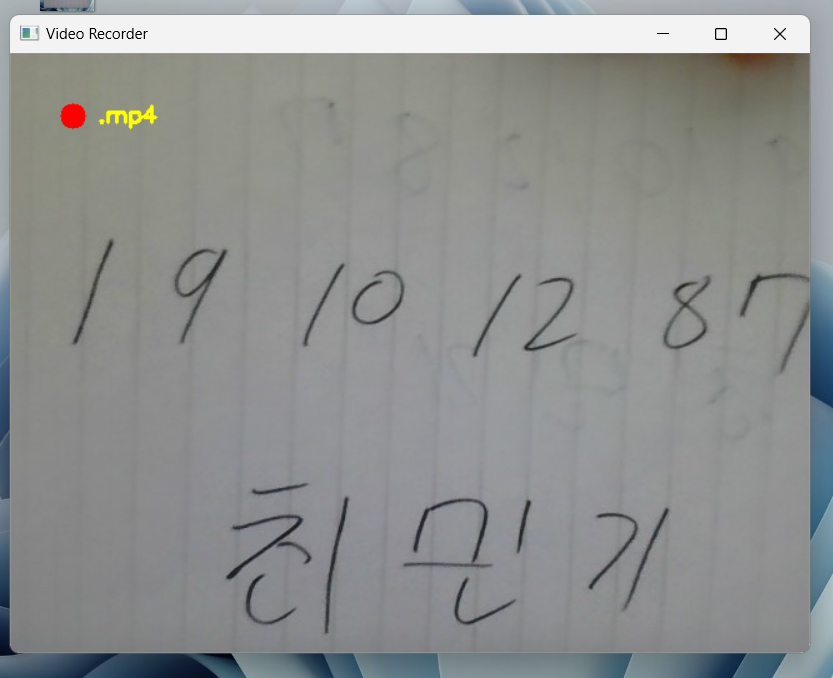 Video Recorder
.mp4
1 9 10 12 87
최민기